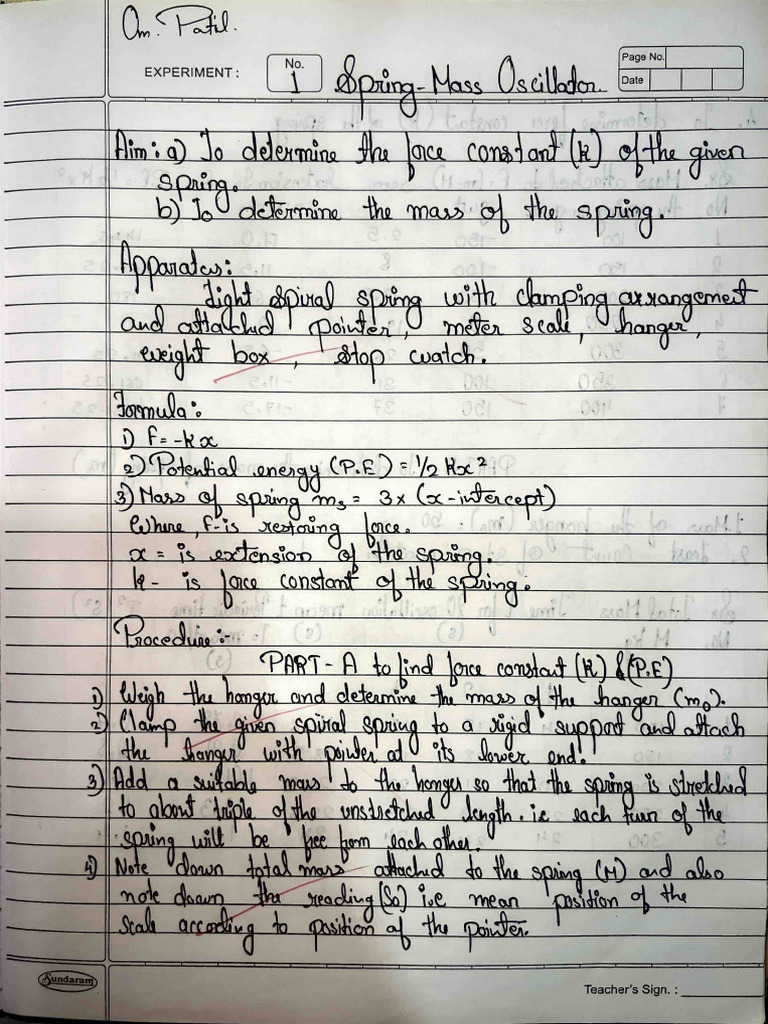 Om. Patil.
EXPERIMENT :
No.
1
Spring-Mass Oscillator.
Page No.
Date
Aim: a) To determine the force constant (k) of the given
spring.
b) To determine the mass of the spring.
Apparatus:
Light spiral spring with clamping arrangement
and attached pointer, meter scale, hanger,
weight box, stop watch.
Formula:
1) F = -kx
2) Potential energy (P.E) = 1/2 kx²
3) Mass of spring ms = 3x (x-intercept)
Where, F-is restoring force.
x = is extension of the spring.
k - is force constant of the spring.
Procedure:-
PART-A to find force constant (k) & (P.E)
1) Weigh the hanger and determine the mass of the hanger (m₀).
2) Clamp the given spiral spring to a rigid support and attach
the hanger with pointer at its lower end.
3) Add a suitable mass to the hanger so that the spring is stretched
to about triple of the unstretched length. i.e each turn of the
spring will be free from each other.
4) Note down total mass attached to the spring (M) and also
note down the reading (So) i.e mean position of the
scale according to position of the pointer.
Sundaram
Teacher's Sign. :